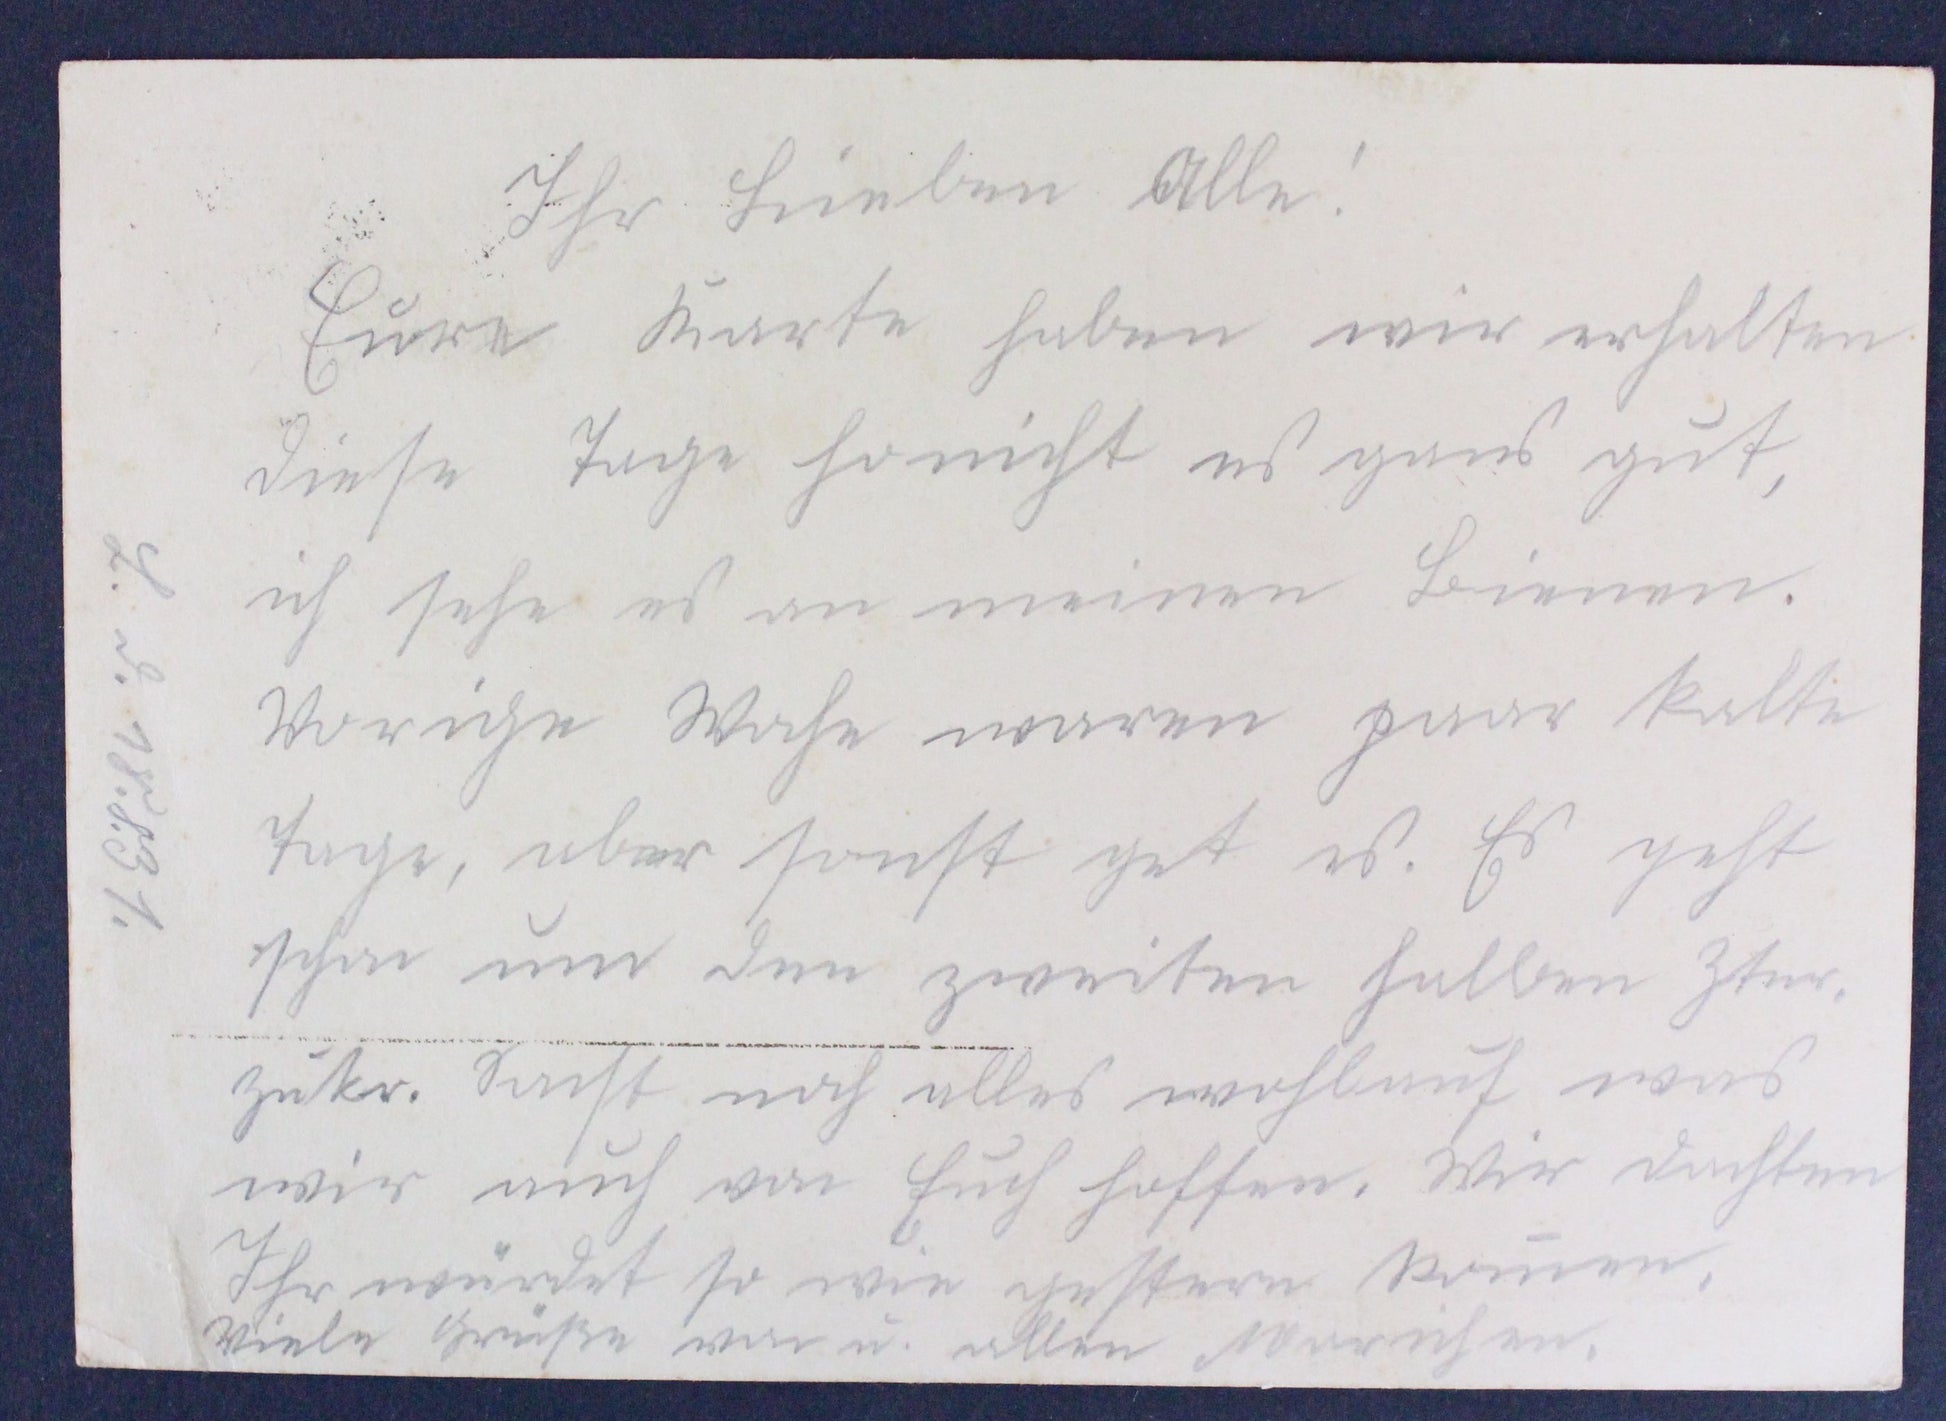 Ihr Lieben Alle!
Eure Karte haben wir erhalten
diese Tage honicht es gans gut,
ich sehe es an meinen Bienen.
Vorige Wohe waren paar kalte
Tage, aber sonst get es. Es geht
schon um den zweiten halben Ztnr.
Zukr. Sonst noch alles wohlauf was
wir auch von Euch hoffen. Wir dachten
Ihr würdet so wie gestern komen.
Viele Grüße von u. allen Marichen.